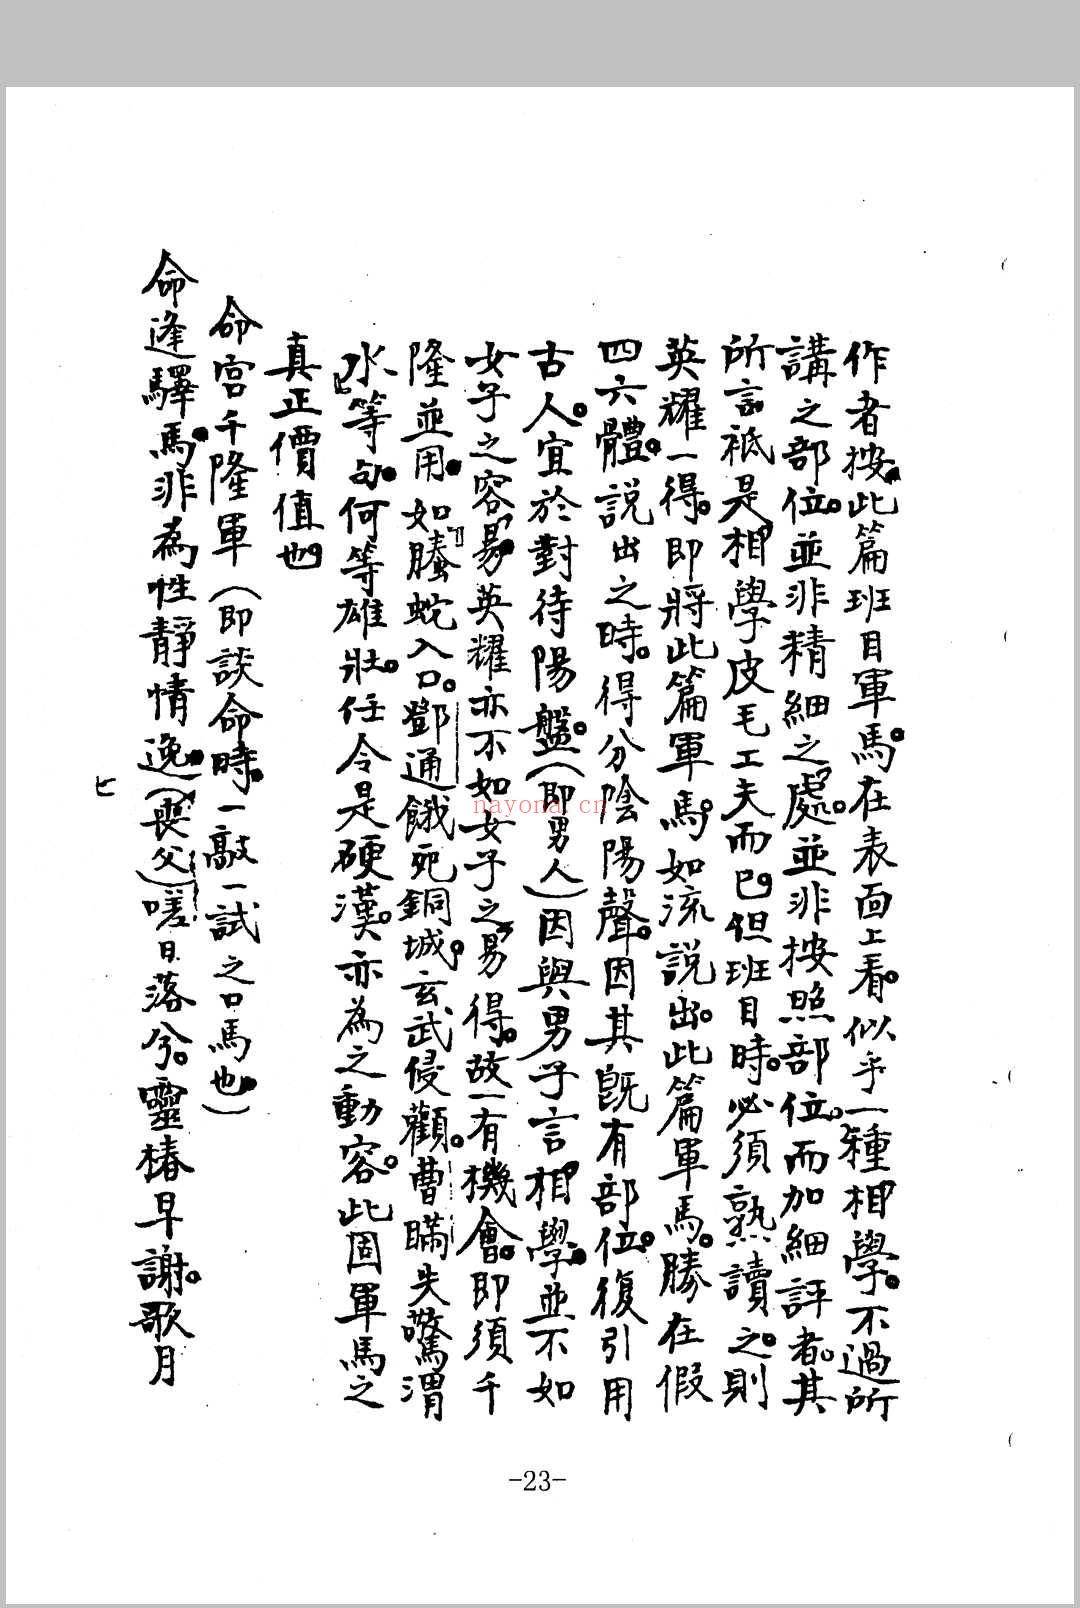 作者按。此篇班目軍馬。在表面上看。似乎一種相學。不過所
講之部位。並非精細之處。並非按照部位。而加細評者。其
所言祗是相學皮毛工夫而已。但班目時。必須熟讀之。則
英耀一得。即將此篇軍馬。如流說出。此篇軍馬。勝在假
四六體。説出之時。得分陰陽聲。因其既有部位。復引用
古人。宜於對待陽盤。(即男人)因與男子言相學。並不如
女子之容易。英耀亦不如女子之易得。故一有機會。即須千
隆並用。如「螣蛇入口。鄧通餓死銅城。玄武侵顴。曹瞞失驚渭
水」等句。何等雄壯。任令是硬漢。亦為之動容。此固軍馬之
真正價值也。
命宮千隆軍(即談命時。一敲一試之口馬也。)
命逢驛馬。非為性靜情逸。(喪父)嗟日落兮。靈椿早謝。歌月
nayona.cn
-23-